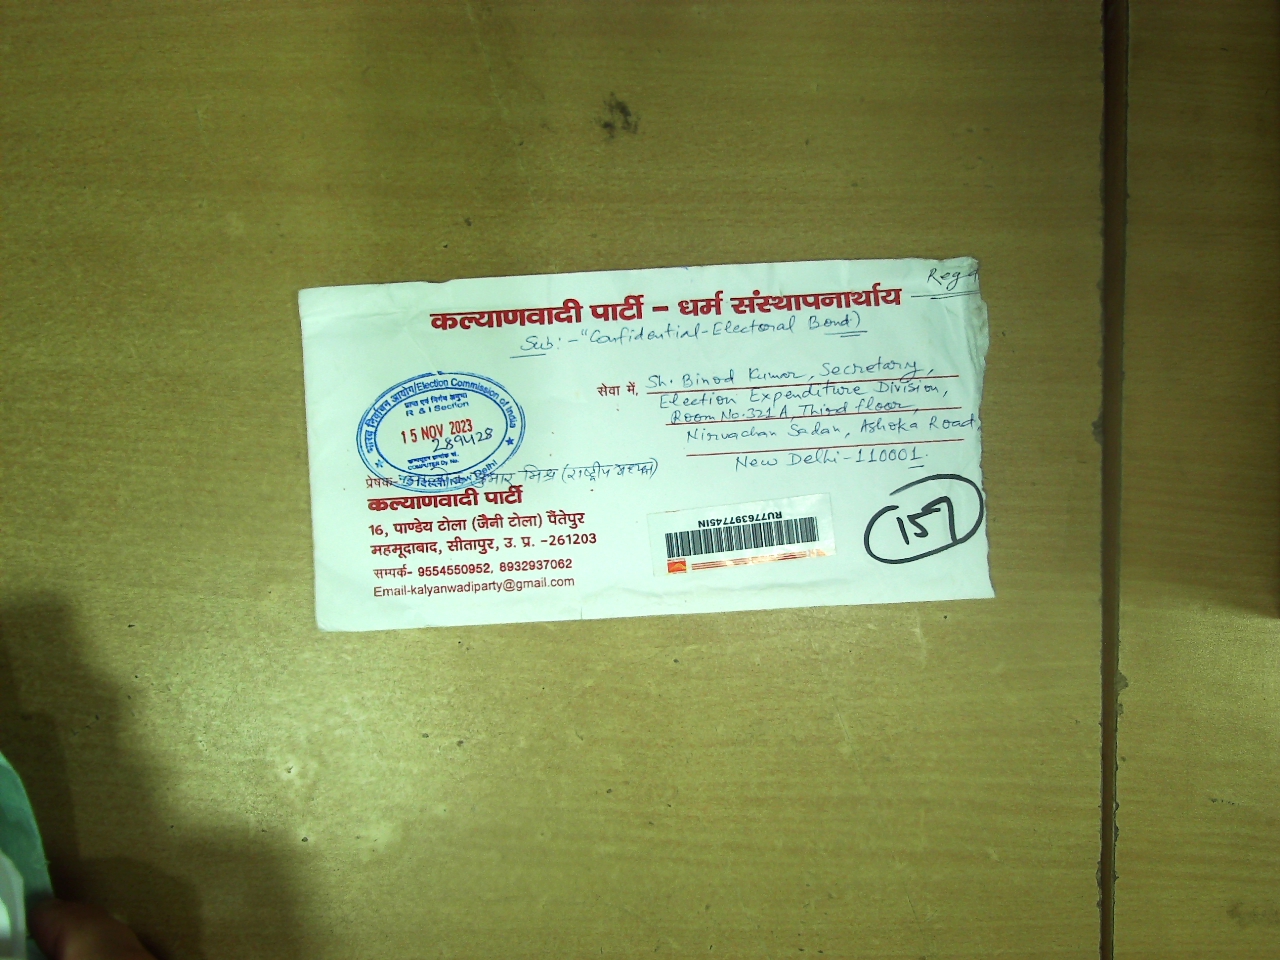 Regd
कल्याणवादी पार्टी - धर्म संस्थापनार्थाय
Sub:-"Confidential-Electoral Bond)
सेवा में, Sh. Binod Kumar, Secretary,
Election Expenditure Division,
Room No. 321 A, Third floor,
Nirvachan Sadan, Ashoka Road,
New Delhi-110001.
भारत निर्वाचन आयोग/Election Commission of India
R & I Section
15 NOV 2023
289428
COMPUTER Dy No.
New Delhi
प्रेषक- कुमार मिश्र (राष्ट्रीय अध्यक्ष)
कल्याणवादी पार्टी
16, पाण्डेय टोला (जैनी टोला) पैंतेपुर
महमूदाबाद, सीतापुर, उ. प्र. -261203
सम्पर्क- 9554550952, 8932937062
Email-kalyanwadiparty@gmail.com
RU776397745IN
157